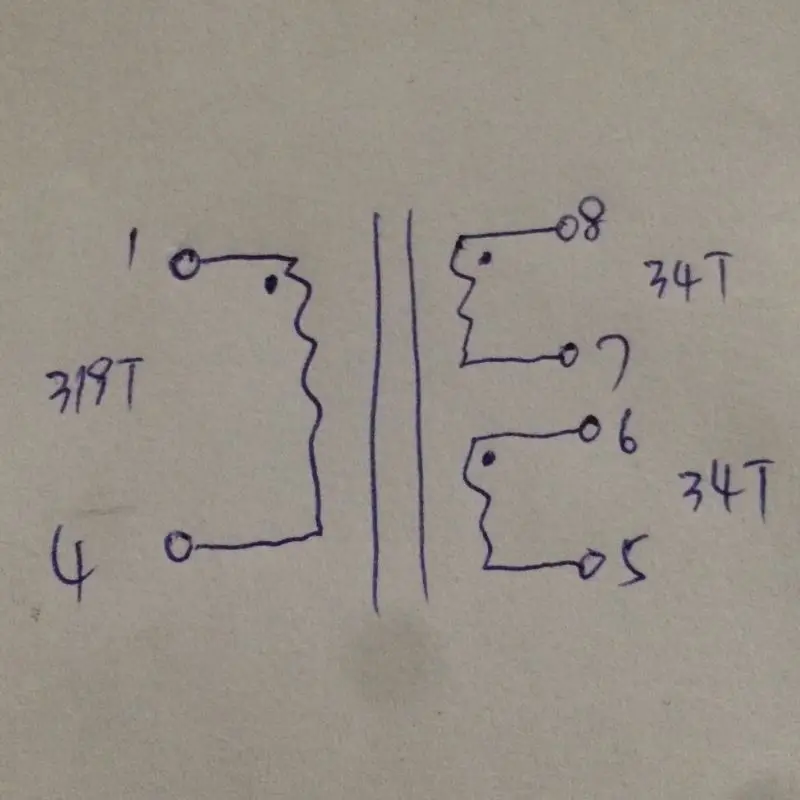 1
8
34T
319T
7
6
34T
4
5